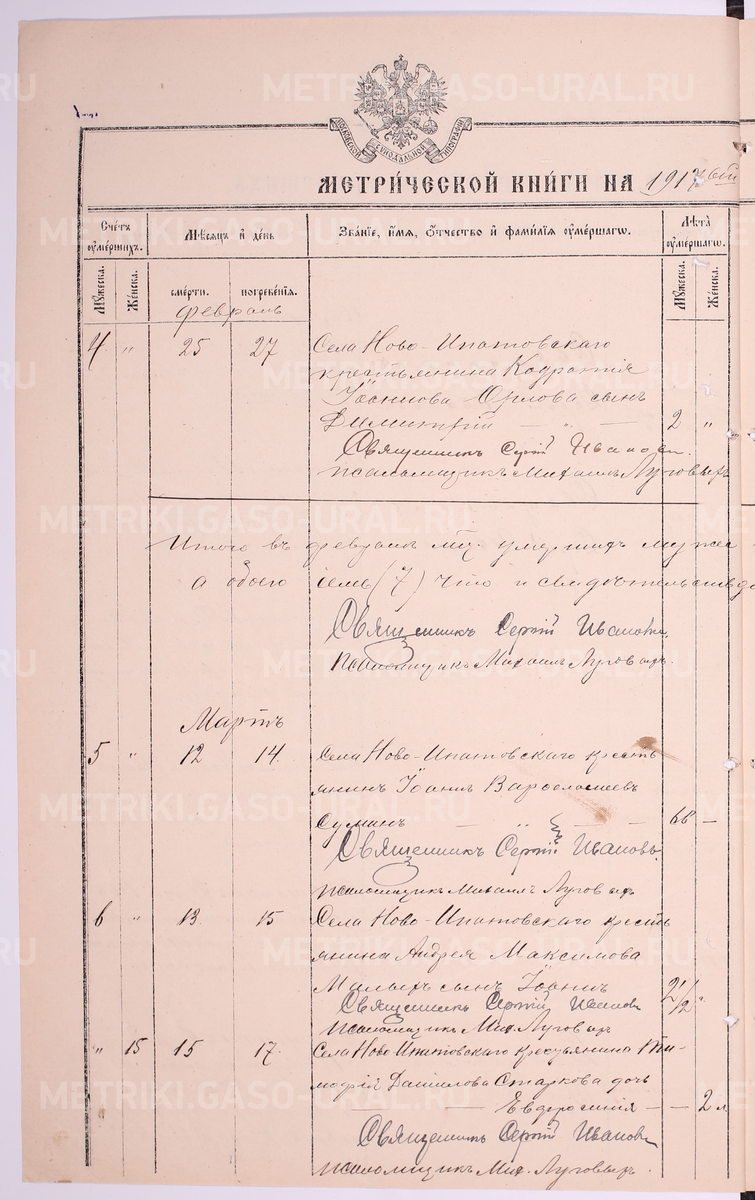 METRIKI.GASO-URAL.RU
МОСКОВСКОЙ СѴНОДАЛЬНОЙ ТИПОГРАФІИ
МЕТРИЧЕСКОЙ КНИГИ НА 1917
Счетъ оумершихъ. Мѣсяцъ и день Званіе, имя, отчество и фамилія оумершагѡ. Лѣта оумершагѡ.
Мужеска. Женска. смерти. погребенія. Мужеска. Женска.
Февраль
4 " 25 27 Села Ново-Ипатовскаго
крестьянина Кодратія
Іоаннова Орлова сынъ
Димитрій — " — 2 "
Священникъ Сергій Ивановъ.
псаломщикъ Михаилъ Луговыхъ
Итого въ феврале мц. умершихъ муже
а обоего семь (7) Что и свидѣтельствуе
Священникъ Сергій Ивановъ.
Псаломщикъ Михаилъ Луговыхъ.
Мартъ
5 " 12 14. Села Ново-Ипатовскаго кресть
янинъ Іоаннъ
— " — 68 —
Священникъ Сергій Ивановъ.
Псаломщикъ Михаилъ Луговыхъ
6 " 13. 15 Села Ново-Ипатовскаго кресть
янина Андрея Максимова
Малыхъ сынъ Іоаннъ 2 1/2 "
Священникъ Сергій Ивановъ
Псаломщикъ Мих. Луговыхъ
" 15 15 17. Села Ново-Ипатовскаго крестьянина Ти-
мофія Даниилова Старкова дочь
Евфросинія — — 2 л
Священникъ Сергій Ивановъ
Псаломщикъ Мих. Луговыхъ.